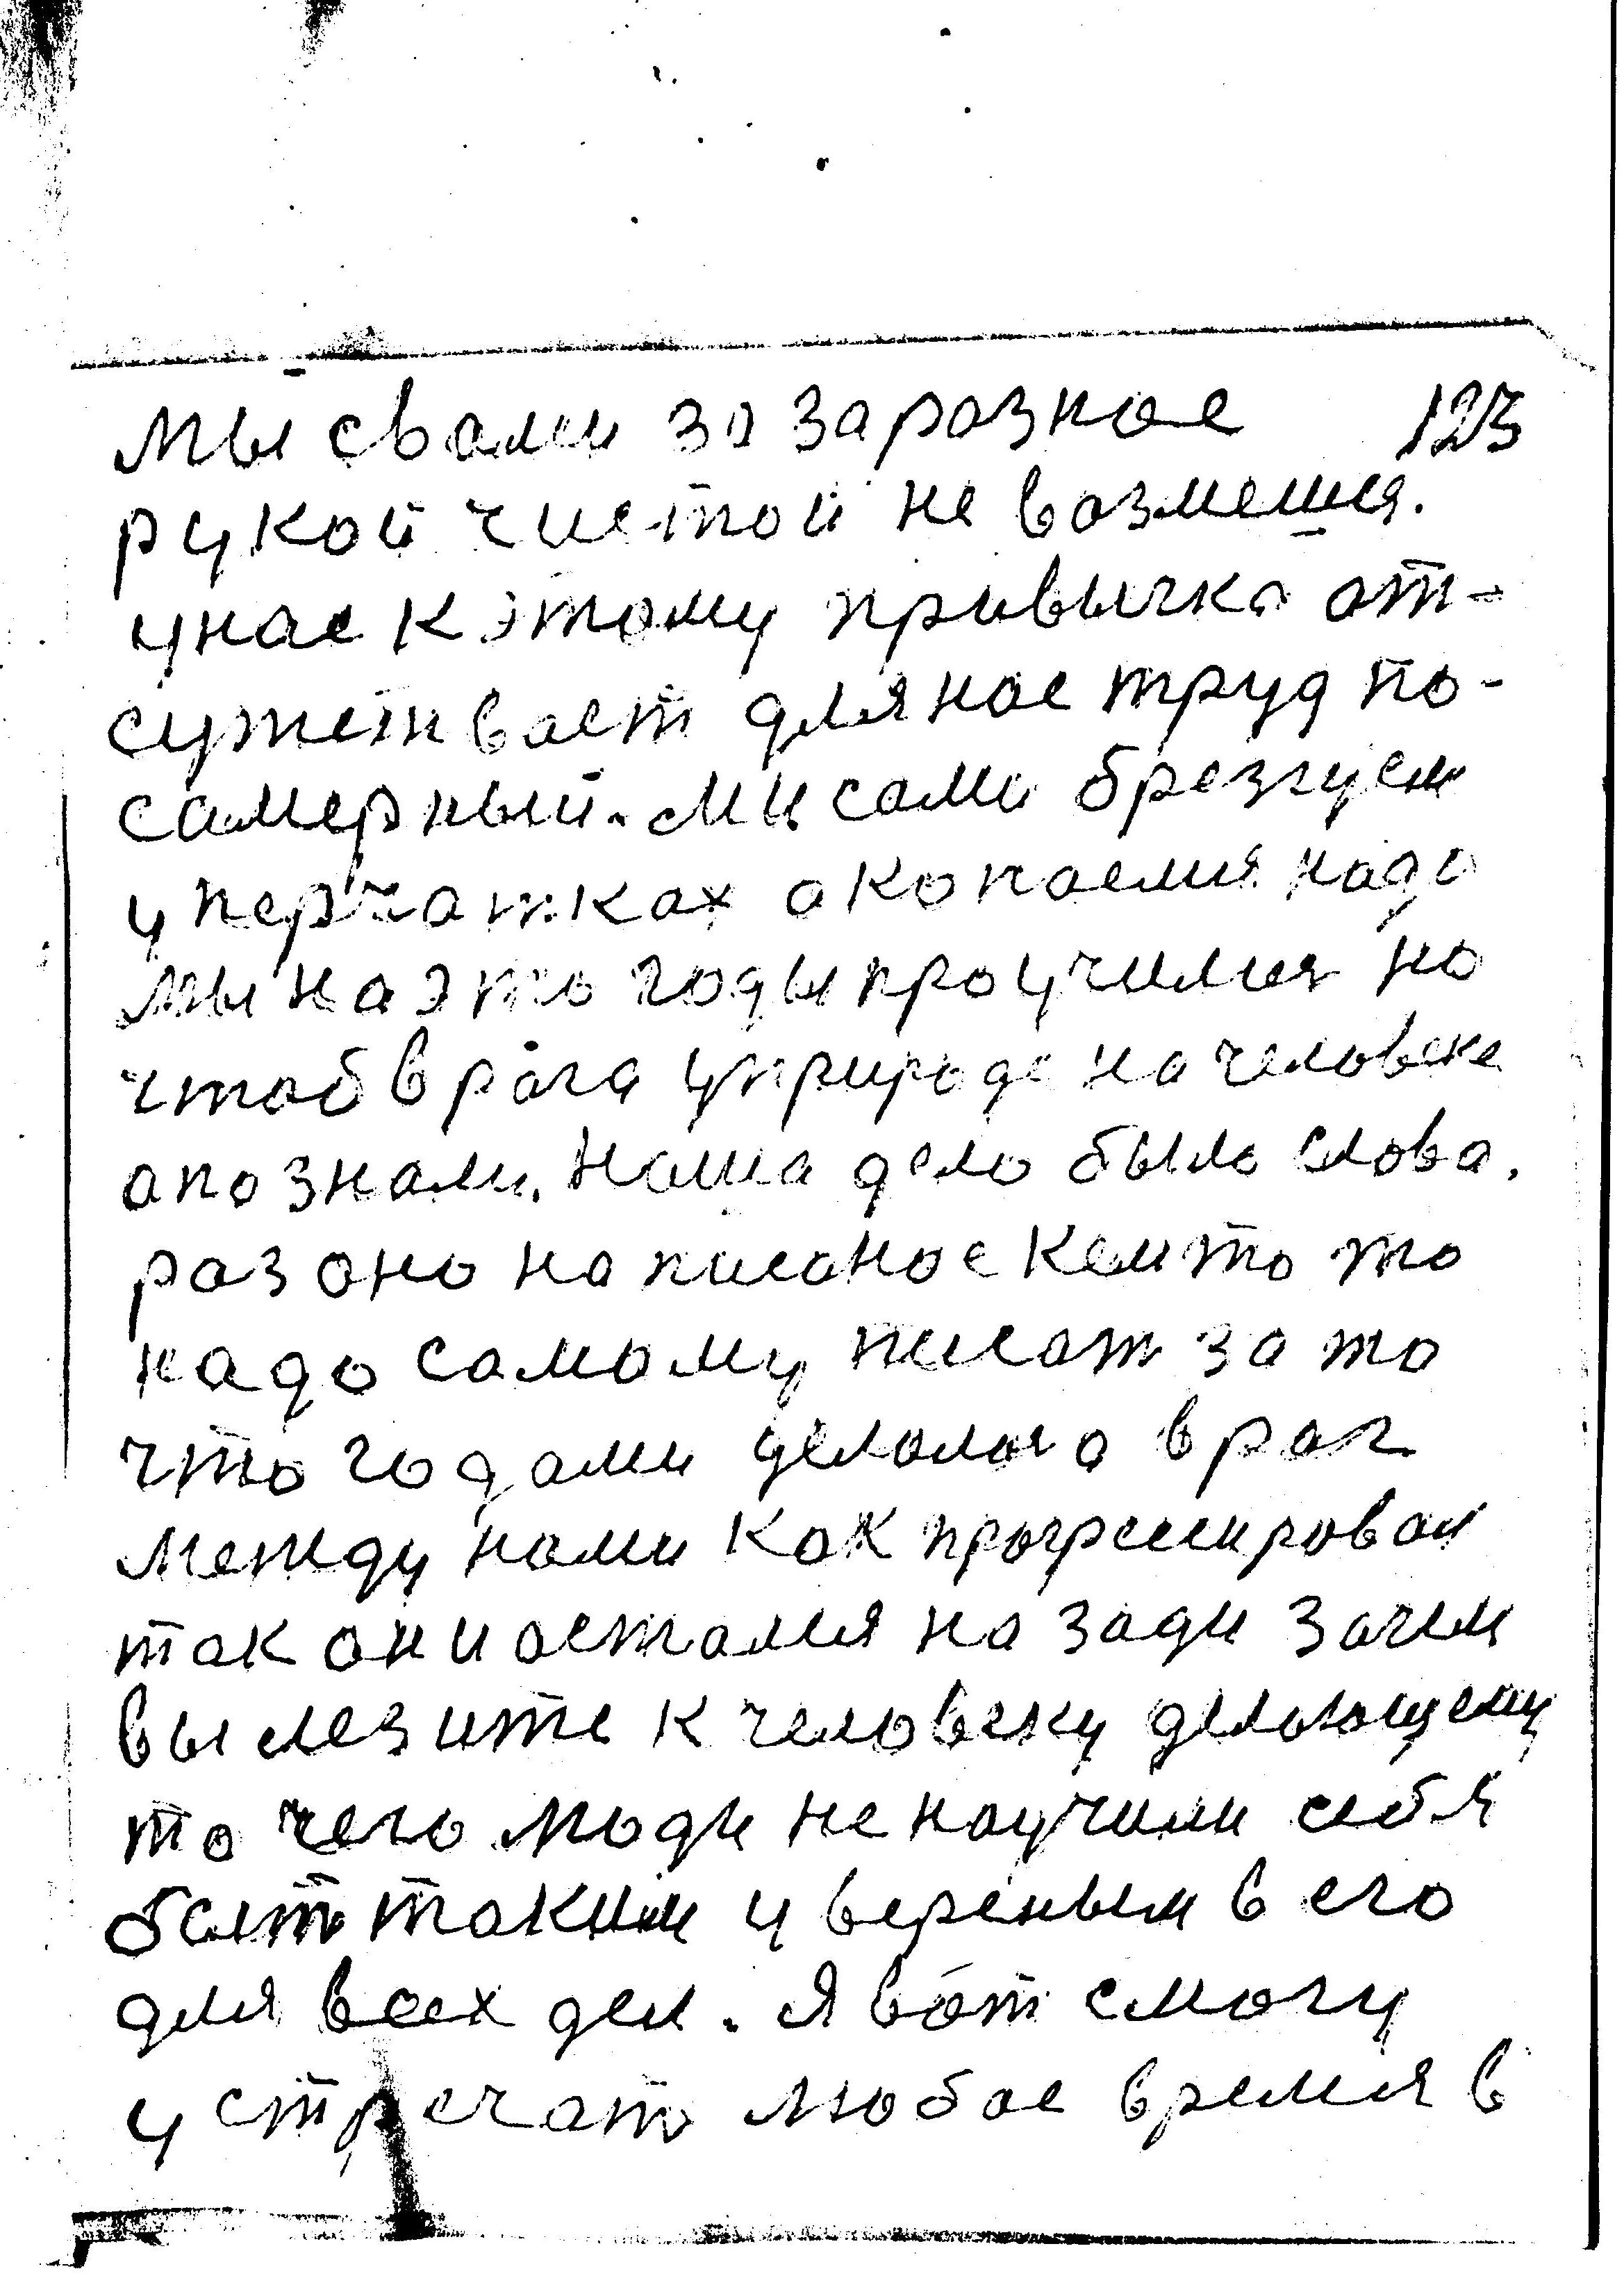 мы свами за заразное 123
рукой чистой не возмешся.
унас к этому привычка от-
сужствает для нас труд по-
самерный. Ми сами брезгуем
у перчатках окопаемся надо
мы на это годы проучимся но
чтоб врага уприроде на человеке
апознали. Наша дело было слова.
раз оно написоное кемто то
надо самому писат за то
что годами делалось а враг
между нами как прогресировал
так они астался на зади зачем
вы лезите к человеку делающему
то чего люди не научили себя
быть таким увереным в его
для всех дел. Я вот смогу
устречать любое время в